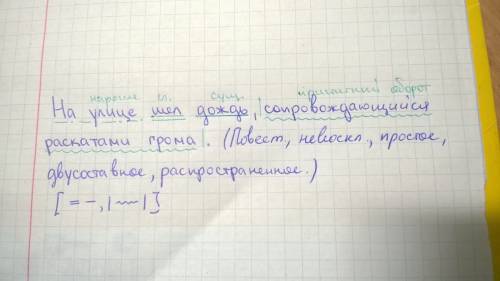 наречие гл. сущ. причастный оборот
На улице шел дождь, |сопровождающийся
раскатами грома|. (Повест., невоскл., простое,
двусоставное, распространенное.)
[=-,|~~|]